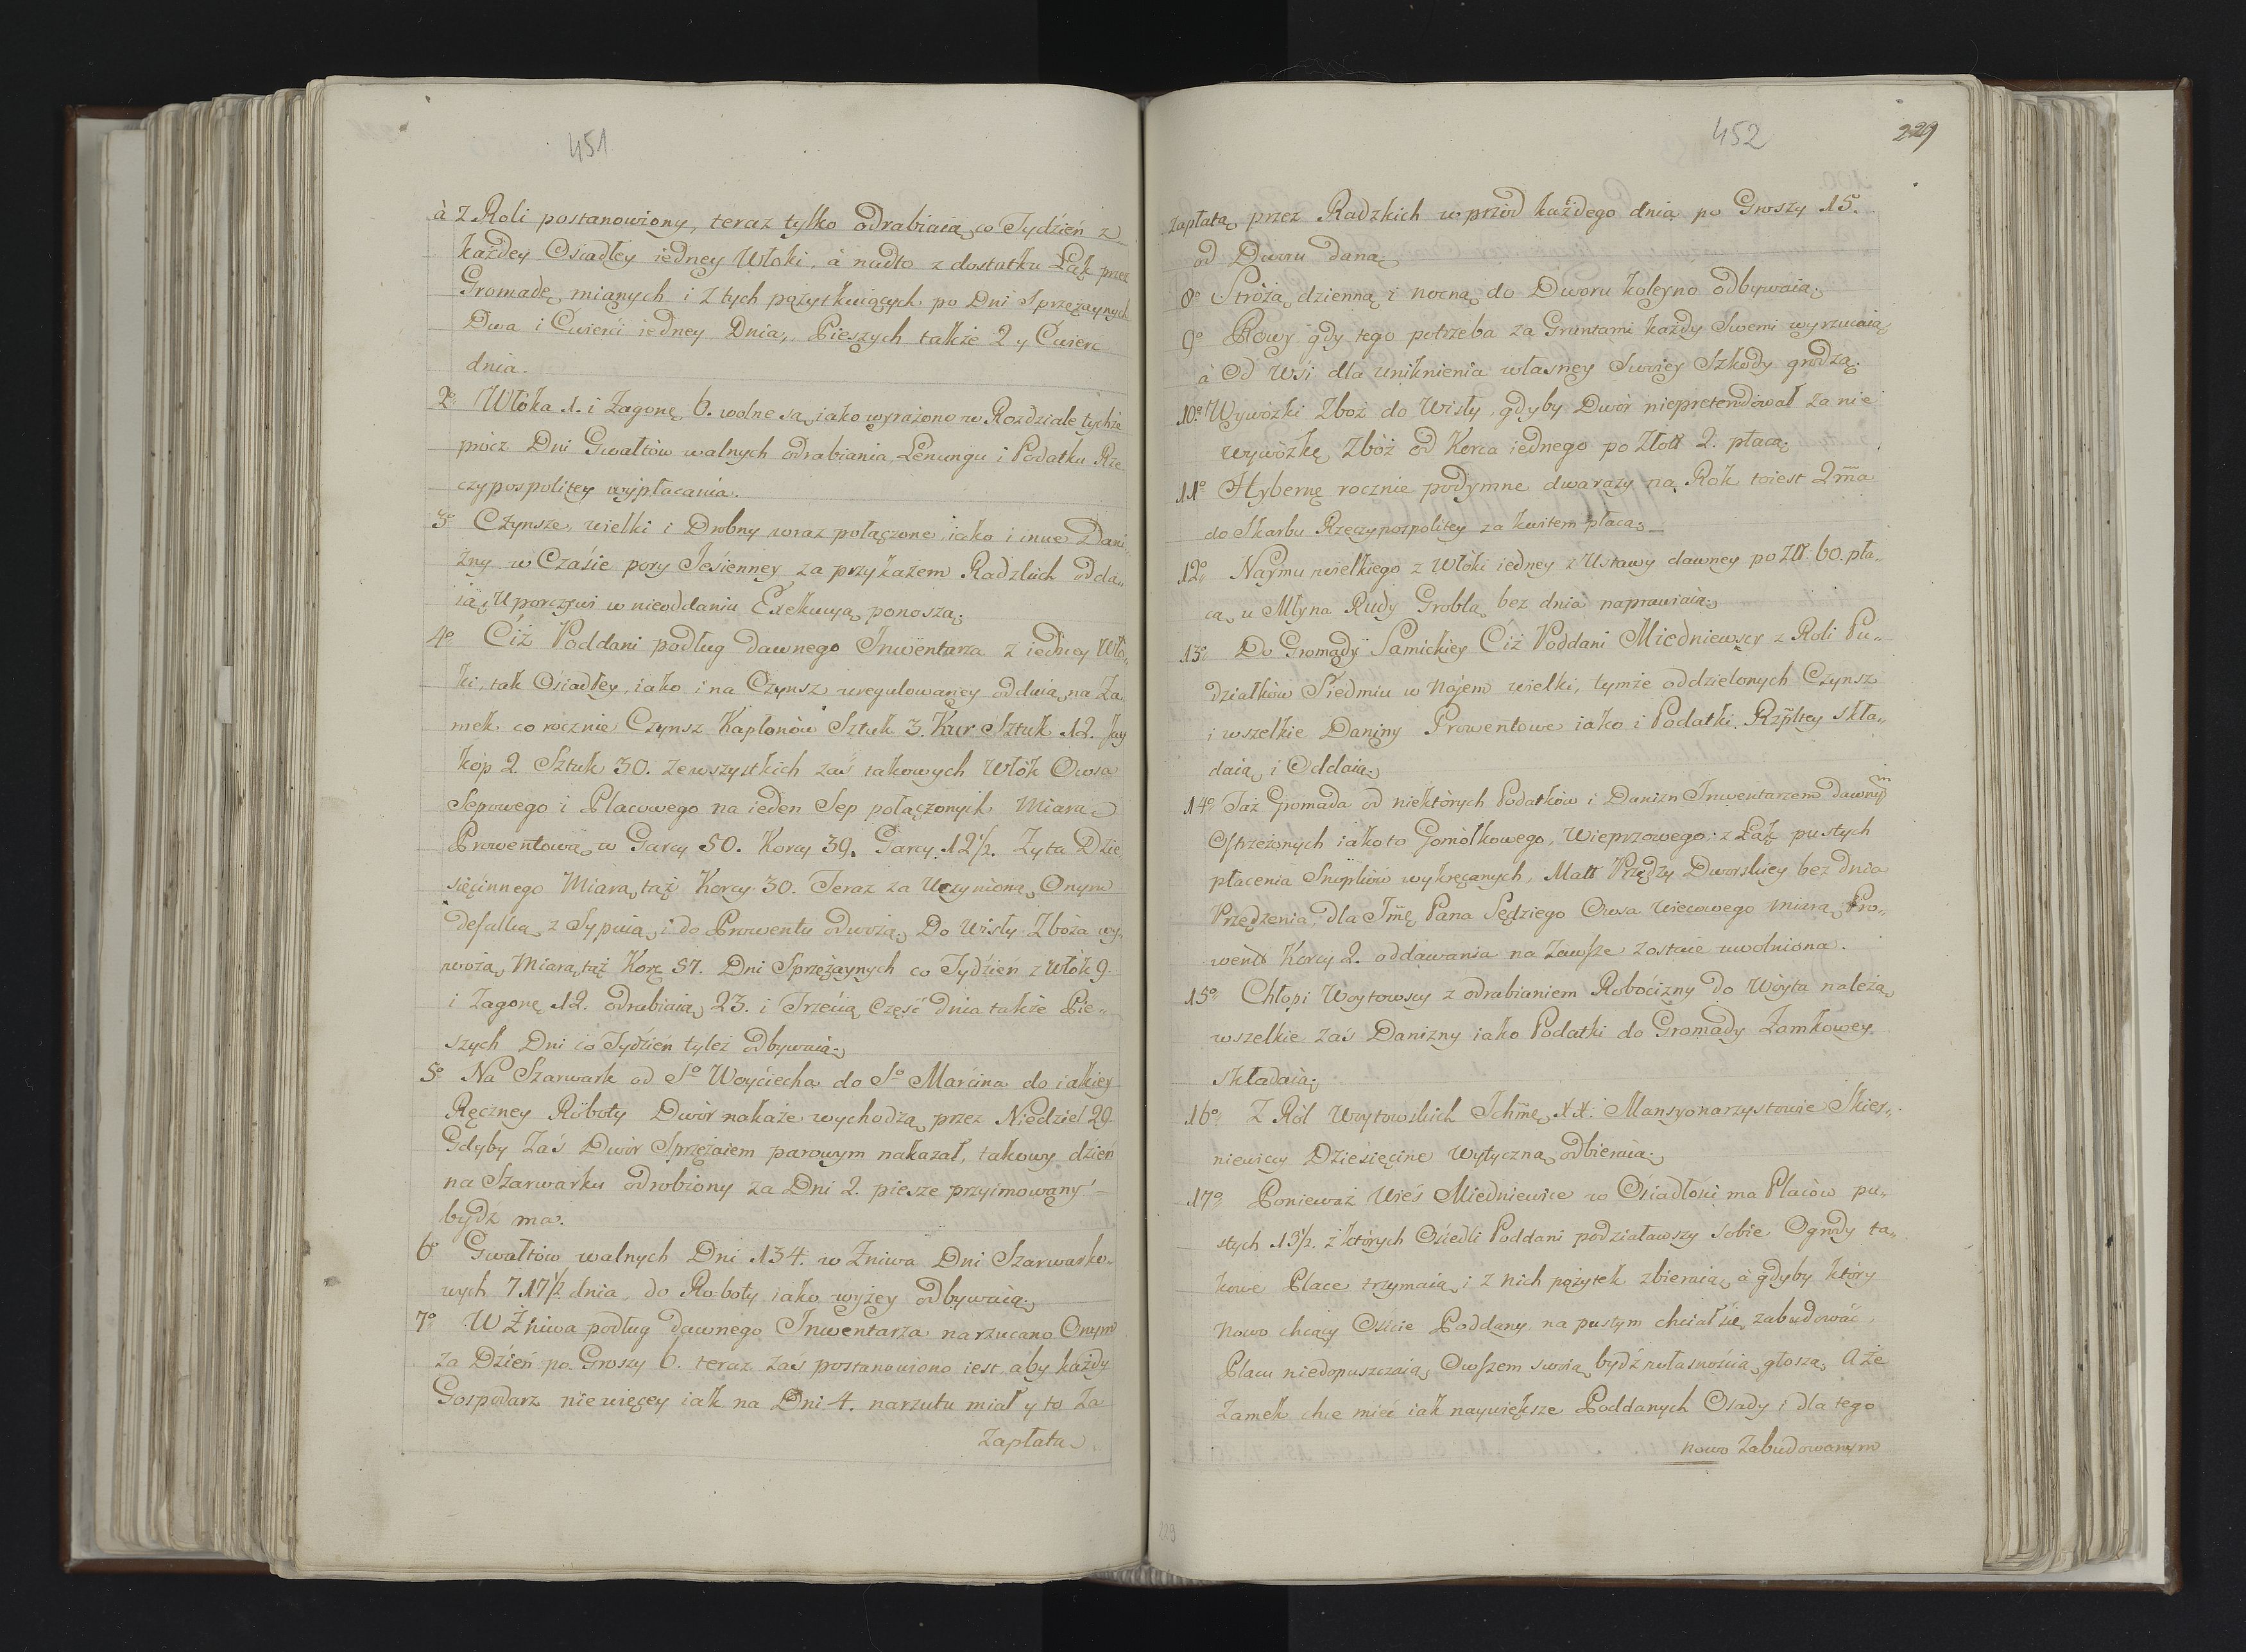 451
à z Roli postanowiony, teraz tylko odrabiaią co Tydzień z
każdey Osiadłey iedney Włoki, à nadto z dostatku Łąk przez
Gromadę mianych i z tych pożytkuiących po Dni Sprzężaynych
Dwa i Ćwierci iedney Dnia, Pieszych także 2 y Ćwierć
dnia.
2o Włóka 1. i Zagonę 6. wolne są, iako wyrażono w Rozdziale tychże
prócz Dni Gwałtów walnych odrabiania, Lenungu i Podatku Rze-
czypospolitey wypłacania.
3o Czynsze, wielki i Drobny wraz połączone, iako i inne Dani-
zny w Czaśie pory Jesienney za przykazem Radzkich odda-
ią, Uporczywi w nieoddaniu Exekucyą ponoszą.
4o Ciż Poddani podług dawnego Inwentarza z iedney Wło-
ki, tak Osiadłey, iako i na Czynsz uregulowaney oddaią na Za-
mek co rocznie Czynsz Kapłonów Sztuk 3. Kur Sztuk 12. Jay
kop 2 Sztuk 30. ze wszystkich zaś takowych Włók Owsa
Sepowego i Placowego na ieden Sep połączonych Miarą
Prowentową w Garcy 50. Korcy 39. Garcy 12 1/2. Żyta Dzie-
sięcinnego Miarą taż Korcy 30. Teraz za Uczynioną Onym
defalką z Sypuią i do Prowentu odwożą. Do Wisły Zboża wy-
wożą Miarą taż Korc 57. Dni Sprzężaynych co Tydzień z Włók 9.
i Zagonę 12. odrabiaią 23. i Trzecią Część dnia także Pie-
szych Dni co Tydzień tyleż odbywaią.
5o Na Szarwark od So Woyciecha do So Marcina do iakiey
Ręczney Roboty Dwór nakaże wychodzą przez Niedziel 29.
Gdyby zaś Dwór Sprzężaiem parowym nakazał, takowy dzień
na Szarwarku odrobiony za Dni 2. piesze przyimowany
bydz ma.
6o Gwałtów walnych Dni 134. w Żniwa Dni Szarwarko-
wych 717 1/2 dnia do Roboty iako wyżey odbywaią.
7o W Żniwa podług dawnego Inwentarza narzucano Onym
za Dzień po Groszy 6. teraz zaś postanowiono iest, aby każdy
Gospodarz niewięcey iak na Dni 4. narzutu miał y to za
Zapłatą
452
229
zapłatą przez Radzkich wprzód każdego dnia po Groszy 15.
od Dworu daną.
8o Stróżą dzienną i nocną do Dworu koleyno odbywaią.
9o Rowy gdy tego potrzeba za Gruntami każdy Swemi wyrzucaią
à Od Wsi dla uniknienia własney Swoiey Szkody grodzą.
10o Wywózki Zboż do Wisły, gdyby Dwór niepretendował za nie
wywózkę Zbóż od Korca iednego po Złott 2. płacą.
11o Hybernę rocznie podymne dwa razy na Rok toiest 2ma
do Skarbu Rzeczypospolitey za kwitem płacą.
12o Naymu wielkiego z Włóki iedney z Ustawy dawney po Złł. 60. pła-
cą, u Młyna Rudy Groblą bez dnia naprawiaią.
13o Do Gromady Samickiey Ciż Poddani Miedniewscy z Roli Pu-
działków Siedmiu w Najem wielki, tymże oddzielonych Czynsz
i wszelkie Daniny Prowentowe iako i Podatki Rzpltey skła-
daią i Oddaią.
14o Taż Gromada od niektórych Podatków i Danizn Inwentarzem dawnym
Ostrzeżonych iako to Gomółkowego, Wieprzowego, z Łąk pustych
płacenia Snopków wykręcanych, Matt Przędzy Dworskiey bez dnia
Przędzenia, dla Jmę Pana Sędziego Owsa Wiecowego Miarą Pro-
went Korcy 2. oddawania na Zawsze zostaie uwolniona.
15o Chłopi Woytowscy z odrabianiem Robocizny do Wóyta należą,
wszelkie zaś Danizny iako Podatki do Gromady Zamkowey
składaią.
16o Z Ról Woytowskich Ichmę XX. Mansyonarzystowie Skier-
niewiccy Dziesięcine Wytyczną odbieraią.
17o Ponieważ Wieś Miedniewice w Osiadłości ma Placów pu-
stych 13 1/2. z których Osiedli Poddani podziaławszy sobie Ogrody ta-
kowe Place trzymaią i z nich pożytek zbieraią, à gdyby który
nowo chcący Osieie Poddany na pustym chciał się zabudować,
Placu niedopuszczaią, Owszem swoią bydź własnością głoszą. A że
Zamek chce mieć iak naywiększe Poddanych Osady i dla tego
nowo Zabudowanym